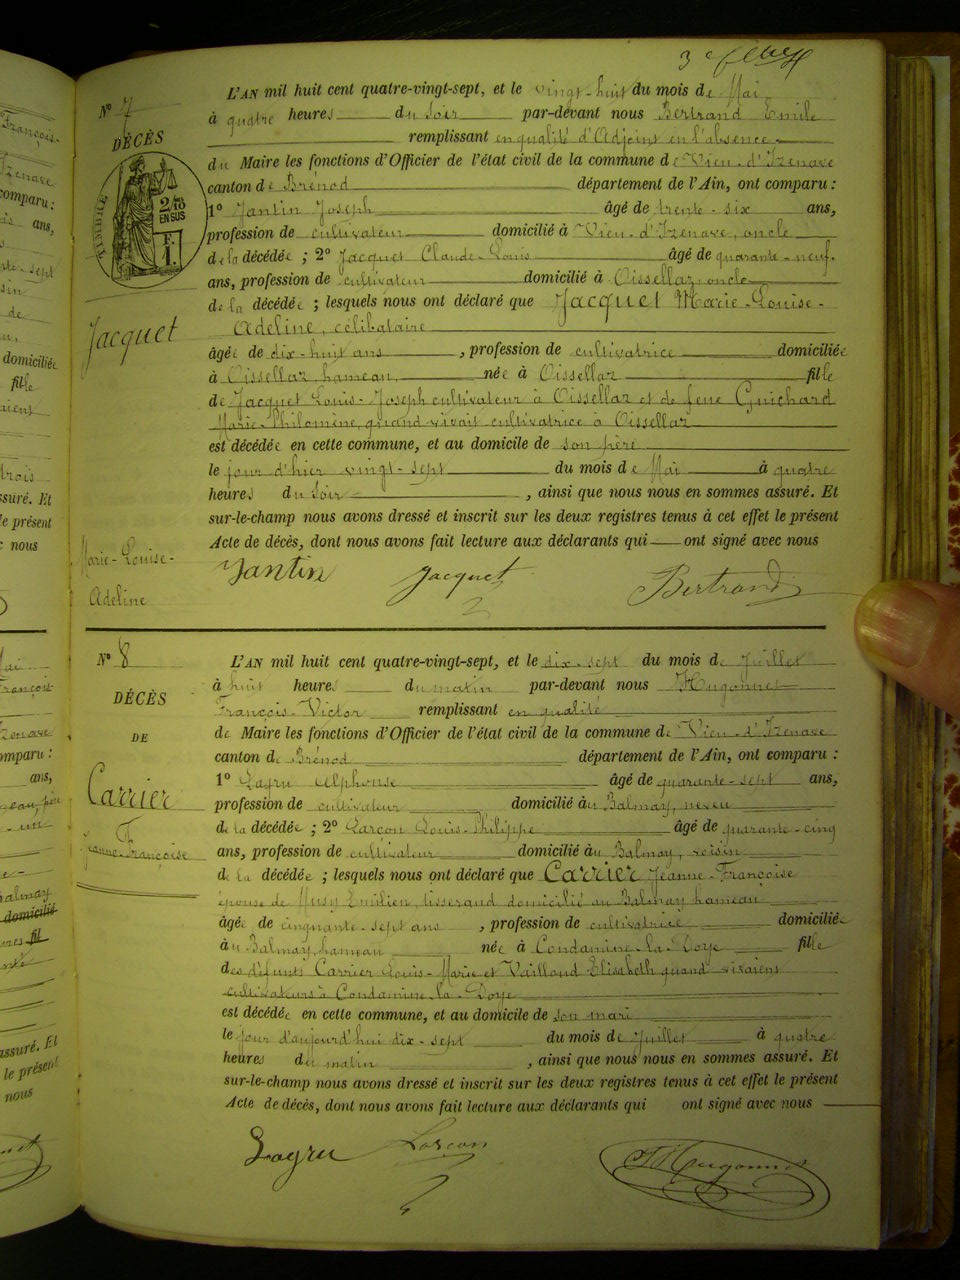 3e feuillet
No 7
DÉCÈS
TIMBRE
2/10
EN SUS
F.
1.
Jacquet
Marie-Louise-
Adeline
L'AN mil huit cent quatre-vingt-sept, et le vingt-huit du mois de Mai
à quatre heures du soir par-devant nous Bertrand Emile
remplissant en qualité d'Adjoint en l'absence
du Maire les fonctions d'Officier de l'état civil de la commune de Vieu-d'Izenave
canton de Brénod département de l'Ain, ont comparu :
1o Jantin Joseph âgé de trente-six ans,
profession de cultivateur domicilié à Vieu-d'Izenave, oncle
de la décédée ; 2o Jacquet Claude-Louis âgé de quarante-neuf
ans, profession de cultivateur domicilié à Oissellaz oncle
de la décédée ; lesquels nous ont déclaré que Jacquet Marie-Louise-
Adeline, célibataire
âgée de dix-huit ans, profession de cultivatrice domiciliée
à Oissellaz hameau, née à Oissellaz fille
de Jacquet Louis-Joseph cultivateur à Oissellaz et de feue Guichard
Marie-Philomène, quand vivait cultivatrice à Oissellaz
est décédée en cette commune, et au domicile de son père
le jour d'hier vingt-sept du mois de Mai à quatre
heures du soir, ainsi que nous nous en sommes assuré. Et
sur-le-champ nous avons dressé et inscrit sur les deux registres tenus à cet effet le présent
Acte de décès, dont nous avons fait lecture aux déclarants qui ont signé avec nous
Jantin Jacquet Bertrand
No 8
DÉCÈS
DE
Carrier
Jeanne-Françoise
L'AN mil huit cent quatre-vingt-sept, et le dix-sept du mois de Juillet
à huit heures du matin par-devant nous Hugonnet
François-Victor remplissant en qualité
de Maire les fonctions d'Officier de l'état civil de la commune de Vieu-d'Izenave
canton de Brénod département de l'Ain, ont comparu :
1o Lagru Alphonse âgé de quarante-sept ans,
profession de cultivateur domicilié au Balmay, neveu
de la décédée ; 2o Larçon Louis-Philippe âgé de quarante-cinq
ans, profession de cultivateur domicilié au Balmay, voisin
de la décédée ; lesquels nous ont déclaré que Carrier Jeanne-Françoise
épouse de Musy Emilien, tisserand domicilié au Balmay hameau
âgée de cinquante-sept ans, profession de cultivatrice domiciliée
au Balmay, hameau née à Condamine-la-Doye fille
des défunts Carrier Louis-Marie et Vailloud Elisabeth quand vivaient
cultivateurs à Condamine-la-Doye
est décédée en cette commune, et au domicile de son mari
le jour d'aujourd'hui dix-sept du mois de Juillet à quatre
heures du matin, ainsi que nous nous en sommes assuré. Et
sur-le-champ nous avons dressé et inscrit sur les deux registres tenus à cet effet le présent
Acte de décès, dont nous avons fait lecture aux déclarants qui ont signé avec nous
Lagru Larçon Hugonnet